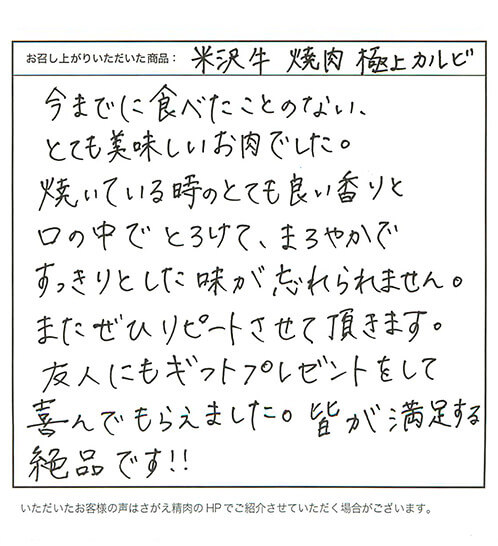 お召し上がりいただいた商品： 米沢牛 焼肉 極上カルビ
今までに食べたことのない、
とても美味しいお肉でした。
焼いている時のとても良い香りと
口の中でとろけて、まろやかで
すっきりとした味が忘れられません。
またぜひリピートさせて頂きます。
友人にもギフトプレゼントをして
喜んでもらえました。皆が満足する
絶品です!!
いただいたお客様の声はさがえ精肉のHPでご紹介させていただく場合がございます。